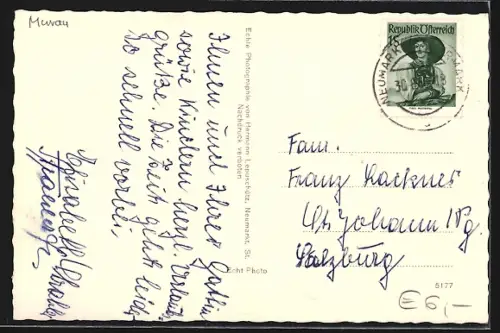 Murau
Ihnen und Ihrer Gattin
sowie Kindern herzl. Urlaubs
grüße. Die Zeit geht leider
so schnell vorbei.
Echte Photographie von Hermann Lepuschütz, Neumarkt, St.
Nachdruck verboten
Echt Photo
Republik Österreich
NEUMARKT
30
Fam.
Franz Lackner
St Johann i/Pg.
Salzburg
5177
€ 6,-